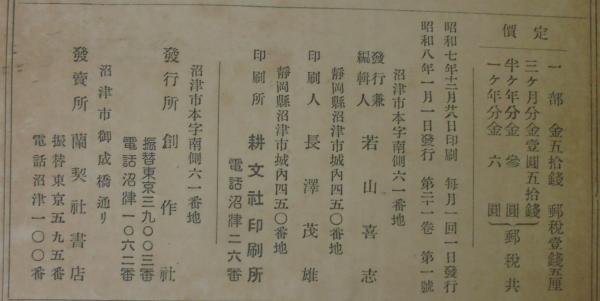 定價
一部 金五拾錢 郵税壹錢五厘
三ヶ月分金壹圓五拾錢
半ヶ年分金參圓
一ヶ年分金六圓
郵税共
昭和七年十二月廿八日印刷 每月一回一日發行
昭和八年一月一日發行 第二十一卷 第一號
沼津市本字南側六一番地
發行兼編輯人 若山喜志
靜岡縣沼津市城內四五〇番地
印刷人 長澤茂雄
靜岡縣沼津市城內四五〇番地
印刷所 耕文社印刷所
電話沼津二六番
沼津市本字南側六一番地
發行所 創作社
振替東京三九〇〇三番
電話沼津一〇六二番
沼津市御成橋通リ
發賣所 蘭契社書店
振替東京五九五番
電話沼津一〇〇番